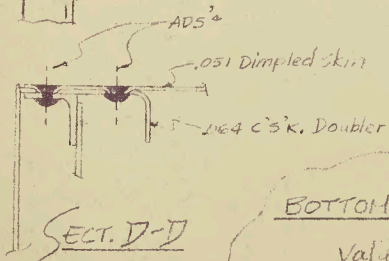 AD5's
.051 Dimpled skin
.064 C'S'K. Doubler
SECT. D-D
BOTTOM